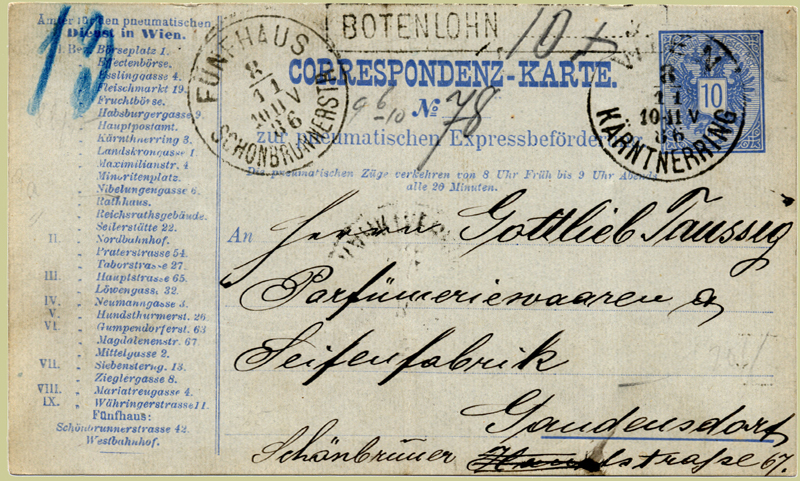 Ämter für den pneumatischen
Dienst in Wien.
I. Bez. Börseplatz 1.
„ Effectenbörse.
„ Esslinggasse 4.
„ Fleischmarkt 19.
„ Fruchtbörse.
„ Habsburgergasse 9.
„ Hauptpostamt.
„ Kärnthnerring 3.
„ Landskrongasse 1.
„ Maximilianstr. 4.
„ Minoritenplatz.
„ Nibelungengasse 6.
„ Rathhaus.
„ Reichsrathsgebäude.
„ Seilerstätte 22.
II. „ Nordbahnhof.
„ Praterstrasse 54.
„ Taborstrasse 27.
III. „ Hauptstrasse 65.
„ Löwengass. 32.
IV. „ Neumanngasse 3.
V. „ Hundsthurmerst. 26
VI. „ Gumpendorferst. 63
„ Magdalenenstr. 67
„ Mittelgasse 2.
VII. „ Siebensterng. 13.
„ Zieglergasse 8.
VIII. „ Mariatreugasse 4.
IX. „ Währingerstrasse 11.
Fünfhaus:
Schönbrunnerstrasse 42.
Westbahnhof.
BOTENLOHN
10
FÜNFHAUS
8
11
10 II V
86
SCHÖNBRUNNERSTR.
CORRESPONDENZ-KARTE.
№ 78
zur pneumatischen Expressbeförderung
Die pneumatischen Züge verkehren von 8 Uhr Früh bis 9 Uhr Abends
alle 20 Minuten.
10
WIEN
8
11
10·II V
86
KÄRNTNERRING
An Herrn Gottlieb Taussig
Parfümeriewaaren &
Seifenfabrik
Gaudensdorf
Schönbrunner Hauptstraße 67.